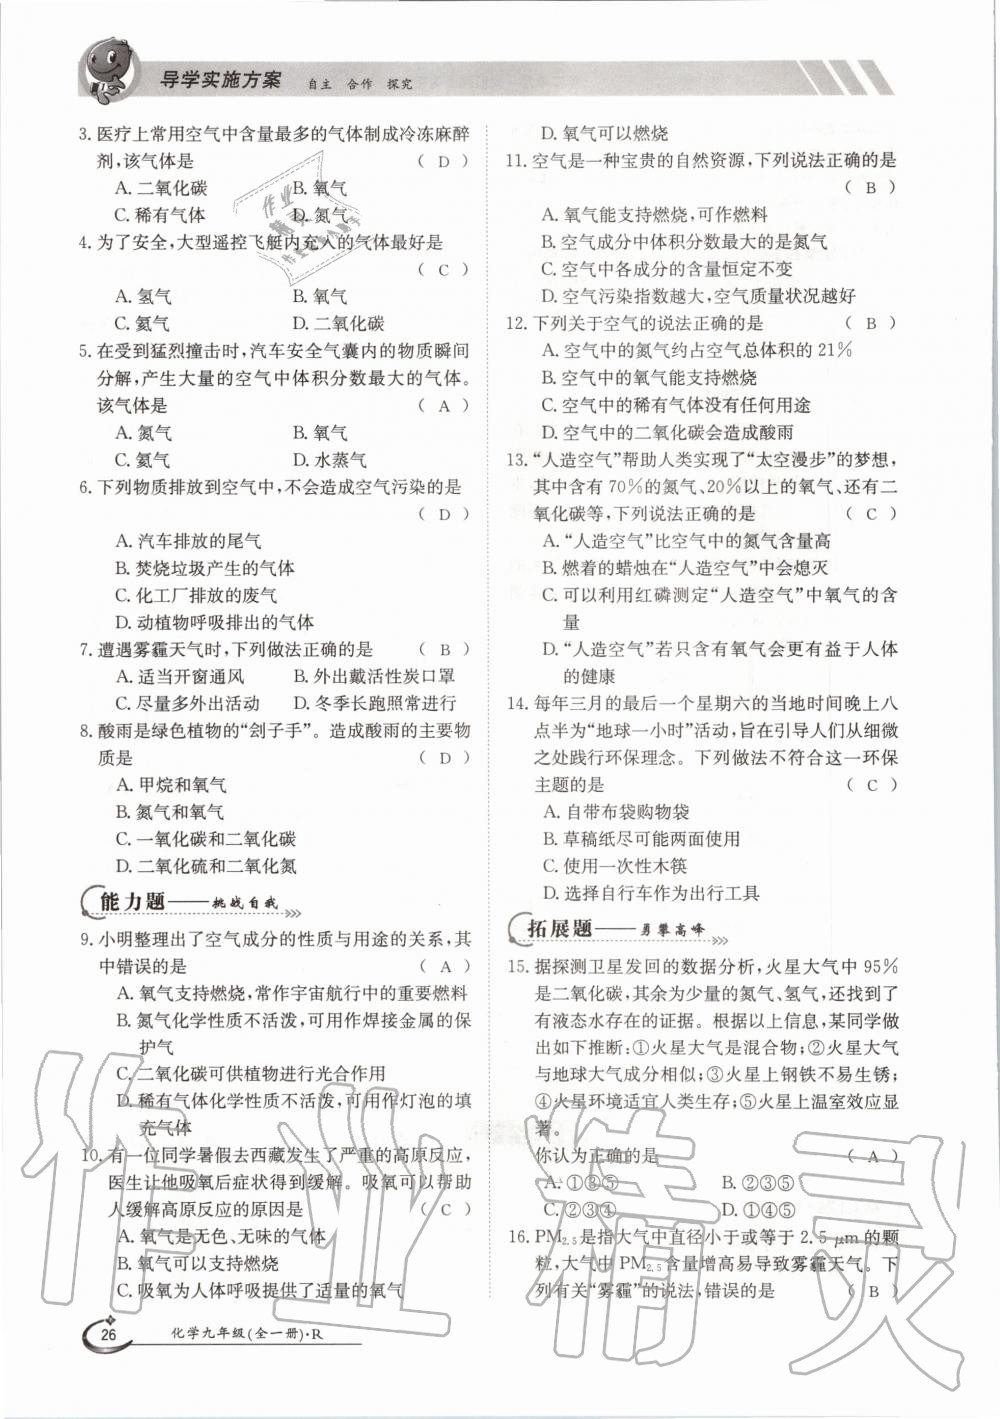 导学实施方案 自主 合作 探究
3. 医疗上常用空气中含量最多的气体制成冷冻麻醉
剂,该气体是 ( D )
A. 二氧化碳 B. 氧气
C. 稀有气体 D. 氮气
4. 为了安全,大型遥控飞艇内充入的气体最好是
( C )
A. 氢气 B. 氧气
C. 氦气 D. 二氧化碳
5. 在受到猛烈撞击时,汽车安全气囊内的物质瞬间
分解,产生大量的空气中体积分数最大的气体。
该气体是 ( A )
A. 氮气 B. 氧气
C. 氦气 D. 水蒸气
6. 下列物质排放到空气中,不会造成空气污染的是
( D )
A. 汽车排放的尾气
B. 焚烧垃圾产生的气体
C. 化工厂排放的废气
D. 动植物呼吸排出的气体
7. 遭遇雾霾天气时,下列做法正确的是 ( B )
A. 适当开窗通风 B. 外出戴活性炭口罩
C. 尽量多外出活动 D. 冬季长跑照常进行
8. 酸雨是绿色植物的“刽子手”。造成酸雨的主要物
质是 ( D )
A. 甲烷和氧气
B. 氮气和氧气
C. 一氧化碳和二氧化碳
D. 二氧化硫和二氧化氮
能力题——挑战自我
9. 小明整理出了空气成分的性质与用途的关系,其
中错误的是 ( A )
A. 氧气支持燃烧,常作宇宙航行中的重要燃料
B. 氮气化学性质不活泼,可用作焊接金属的保
护气
C. 二氧化碳可供植物进行光合作用
D. 稀有气体化学性质不活泼,可用作灯泡的填
充气体
10. 有一位同学暑假去西藏发生了严重的高原反应,
医生让他吸氧后症状得到缓解。吸氧可以帮助
人缓解高原反应的原因是 ( C )
A. 氧气是无色、无味的气体
B. 氧气可以支持燃烧
C. 吸氧为人体呼吸提供了适量的氧气
D. 氧气可以燃烧
11. 空气是一种宝贵的自然资源,下列说法正确的是
( B )
A. 氧气能支持燃烧,可作燃料
B. 空气成分中体积分数最大的是氮气
C. 空气中各成分的含量恒定不变
D. 空气污染指数越大,空气质量状况越好
12. 下列关于空气的说法正确的是 ( B )
A. 空气中的氮气约占空气总体积的21%
B. 空气中的氧气能支持燃烧
C. 空气中的稀有气体没有任何用途
D. 空气中的二氧化碳会造成酸雨
13. “人造空气”帮助人类实现了“太空漫步”的梦想,
其中含有70%的氮气、20%以上的氧气、还有二
氧化碳等,下列说法正确的是 ( C )
A. “人造空气”比空气中的氮气含量高
B. 燃着的蜡烛在“人造空气”中会熄灭
C. 可以利用红磷测定“人造空气”中氧气的含
量
D. “人造空气”若只含有氧气会更有益于人体
的健康
14. 每年三月的最后一个星期六的当地时间晚上八
点半为“地球一小时”活动,旨在引导人们从细微
之处践行环保理念。下列做法不符合这一环保
主题的是 ( C )
A. 自带布袋购物袋
B. 草稿纸尽可能两面使用
C. 使用一次性木筷
D. 选择自行车作为出行工具
拓展题——勇攀高峰
15. 据探测卫星发回的数据分析,火星大气中95%
是二氧化碳,其余为少量的氮气、氢气,还找到了
有液态水存在的证据。根据以上信息,某同学做
出如下推断:①火星大气是混合物;②火星大气
与地球大气成分相似;③火星上钢铁不易生锈;
④火星环境适宜人类生存;⑤火星上温室效应显
著。
你认为正确的是 ( A )
A. ①③⑤ B. ②③⑤
C. ②③④ D. ①④⑤
16. PM2.5是指大气中直径小于或等于2.5 μm的颗
粒,大气中PM2.5含量增高易导致雾霾天气。下
列有关“雾霾”的说法,错误的是 ( B )
26 化学九年级(全一册)·R
作业精灵